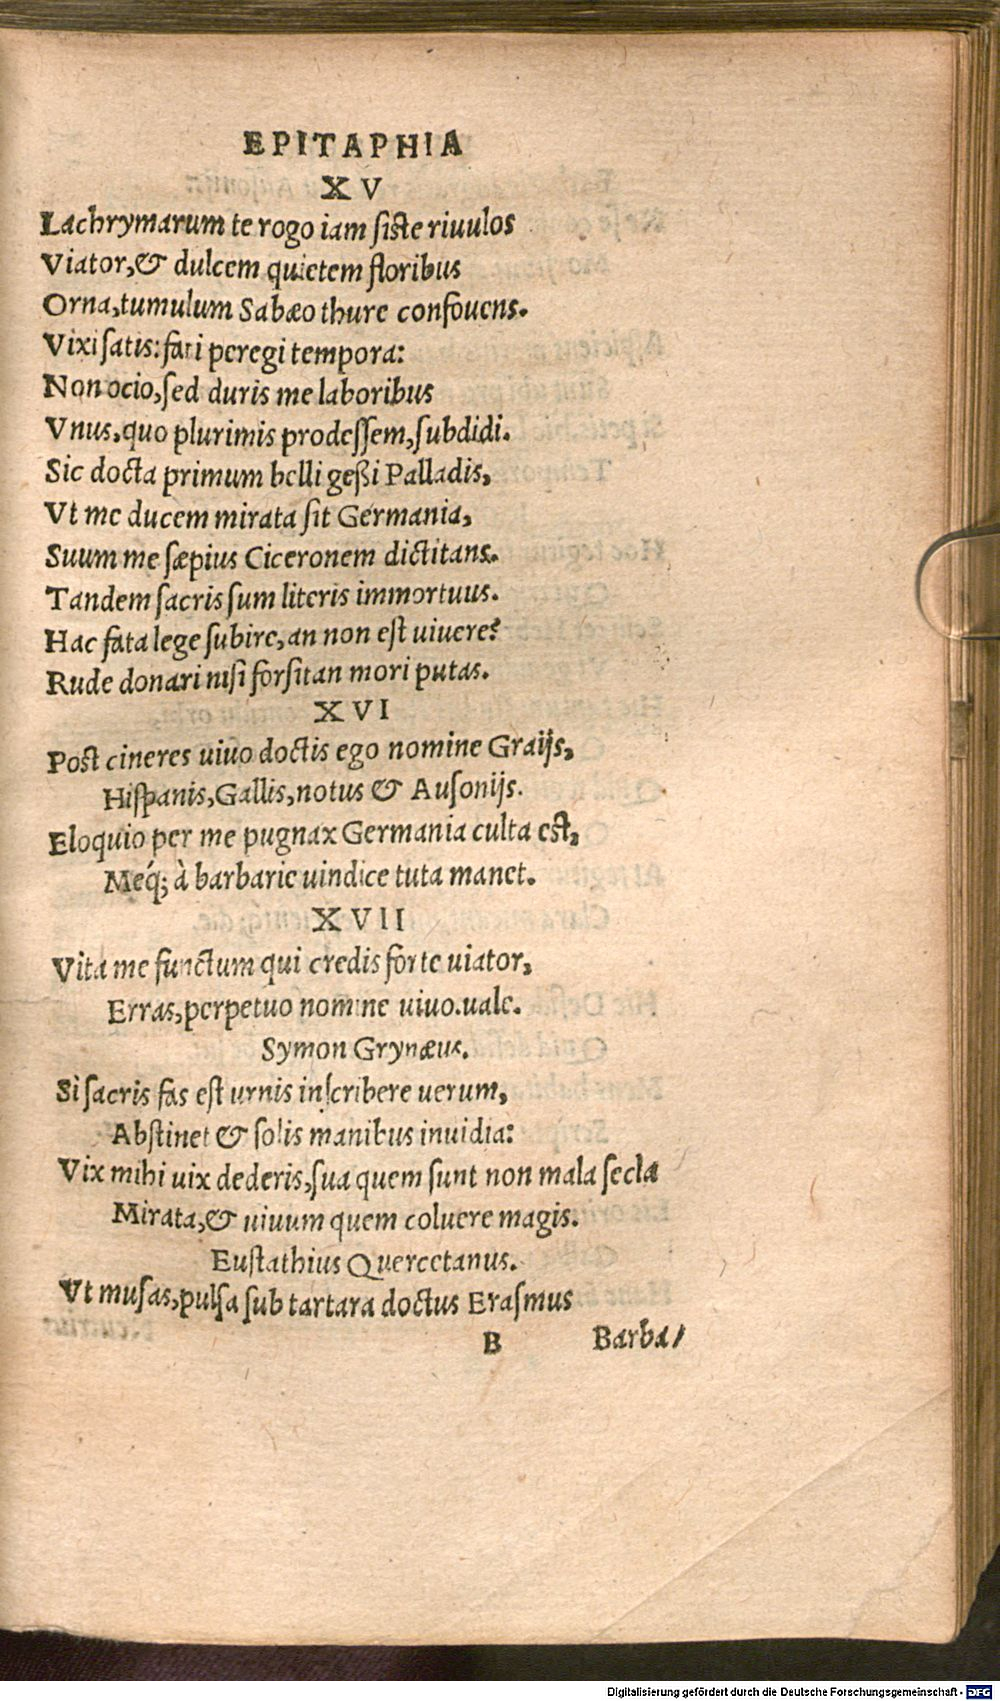 EPITAPHIA
XV
Lachrymarum te rogo iam siste riuulos
Viator,& dulcem quietem floribus
Orna,tumulum Sabæo thure confouens.
Vixi satis: fati peregi tempora:
Non ocio,sed duris me laboribus
Vnus,quo plurimis prodessem,subdidi.
Sic docta primum belli geßi Palladis,
Vt me ducem mirata sit Germania,
Suum me sæpius Ciceronem dictitans.
Tandem sacris sum literis immortuus.
Hac fata lege subire,an non est uiuere?
Rude donari nisi forsitan mori putas.
XVI
Post cineres uiuo doctis ego nomine Graijs,
Hispanis,Gallis,notus & Ausonijs.
Eloquio per me pugnax Germania culta est,
Meq́; à barbarie uindice tuta manet.
XVII
Vita me functum qui credis forte uiator,
Erras,perpetuo nomine uiuo.uale.
Symon Grynæus.
Si sacris fas est urnis inscribere uerum,
Abstinet & solis manibus inuidia:
Vix mihi uix dederis,sua quem sunt non mala secla
Mirata,& uiuum quem coluere magis.
Eustathius Quercetanus.
Vt musas,pulsa sub tartara doctus Erasmus
B Barba/
Digitalisierung gefördert durch die Deutsche Forschungsgemeinschaft - DFG